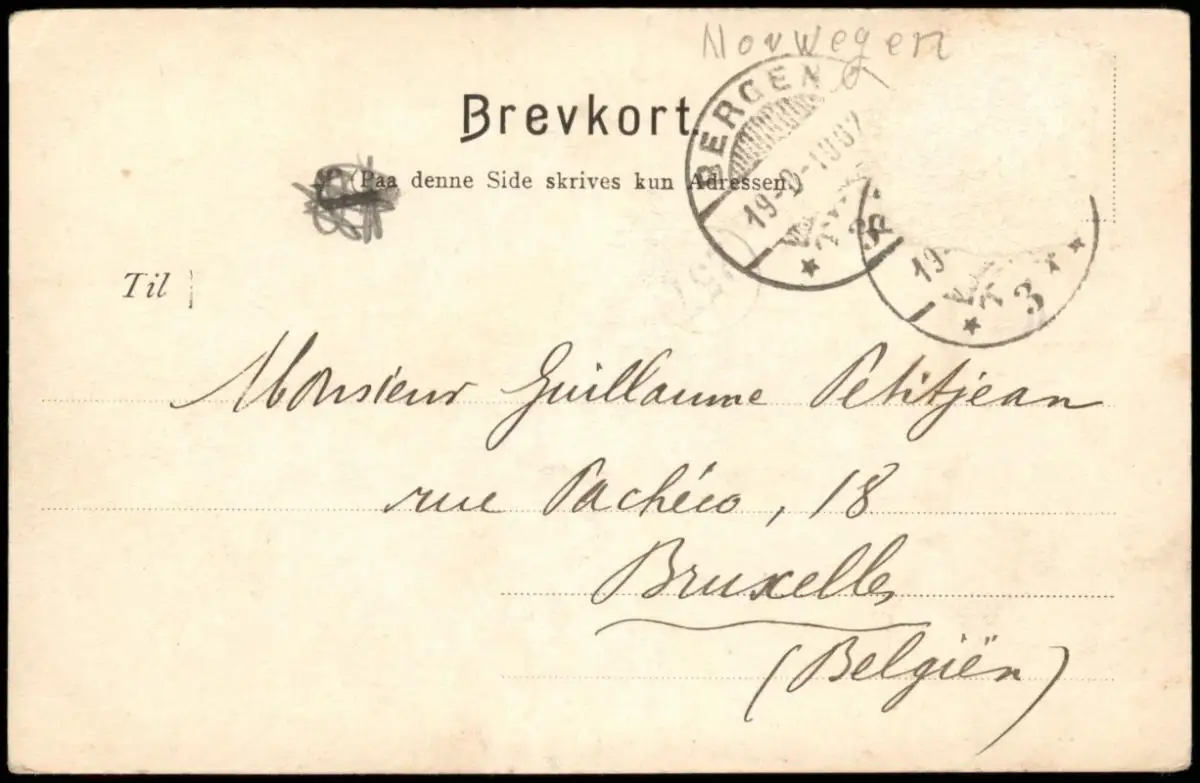 Norwegen
Brevkort.
(Paa denne Side skrives kun Adressen)
BERGEN
19
T
3
19
T
3
57
Til
Monsieur Guillaume Petitjean
rue Pachéco, 18
Bruxelles
(Belgiën)